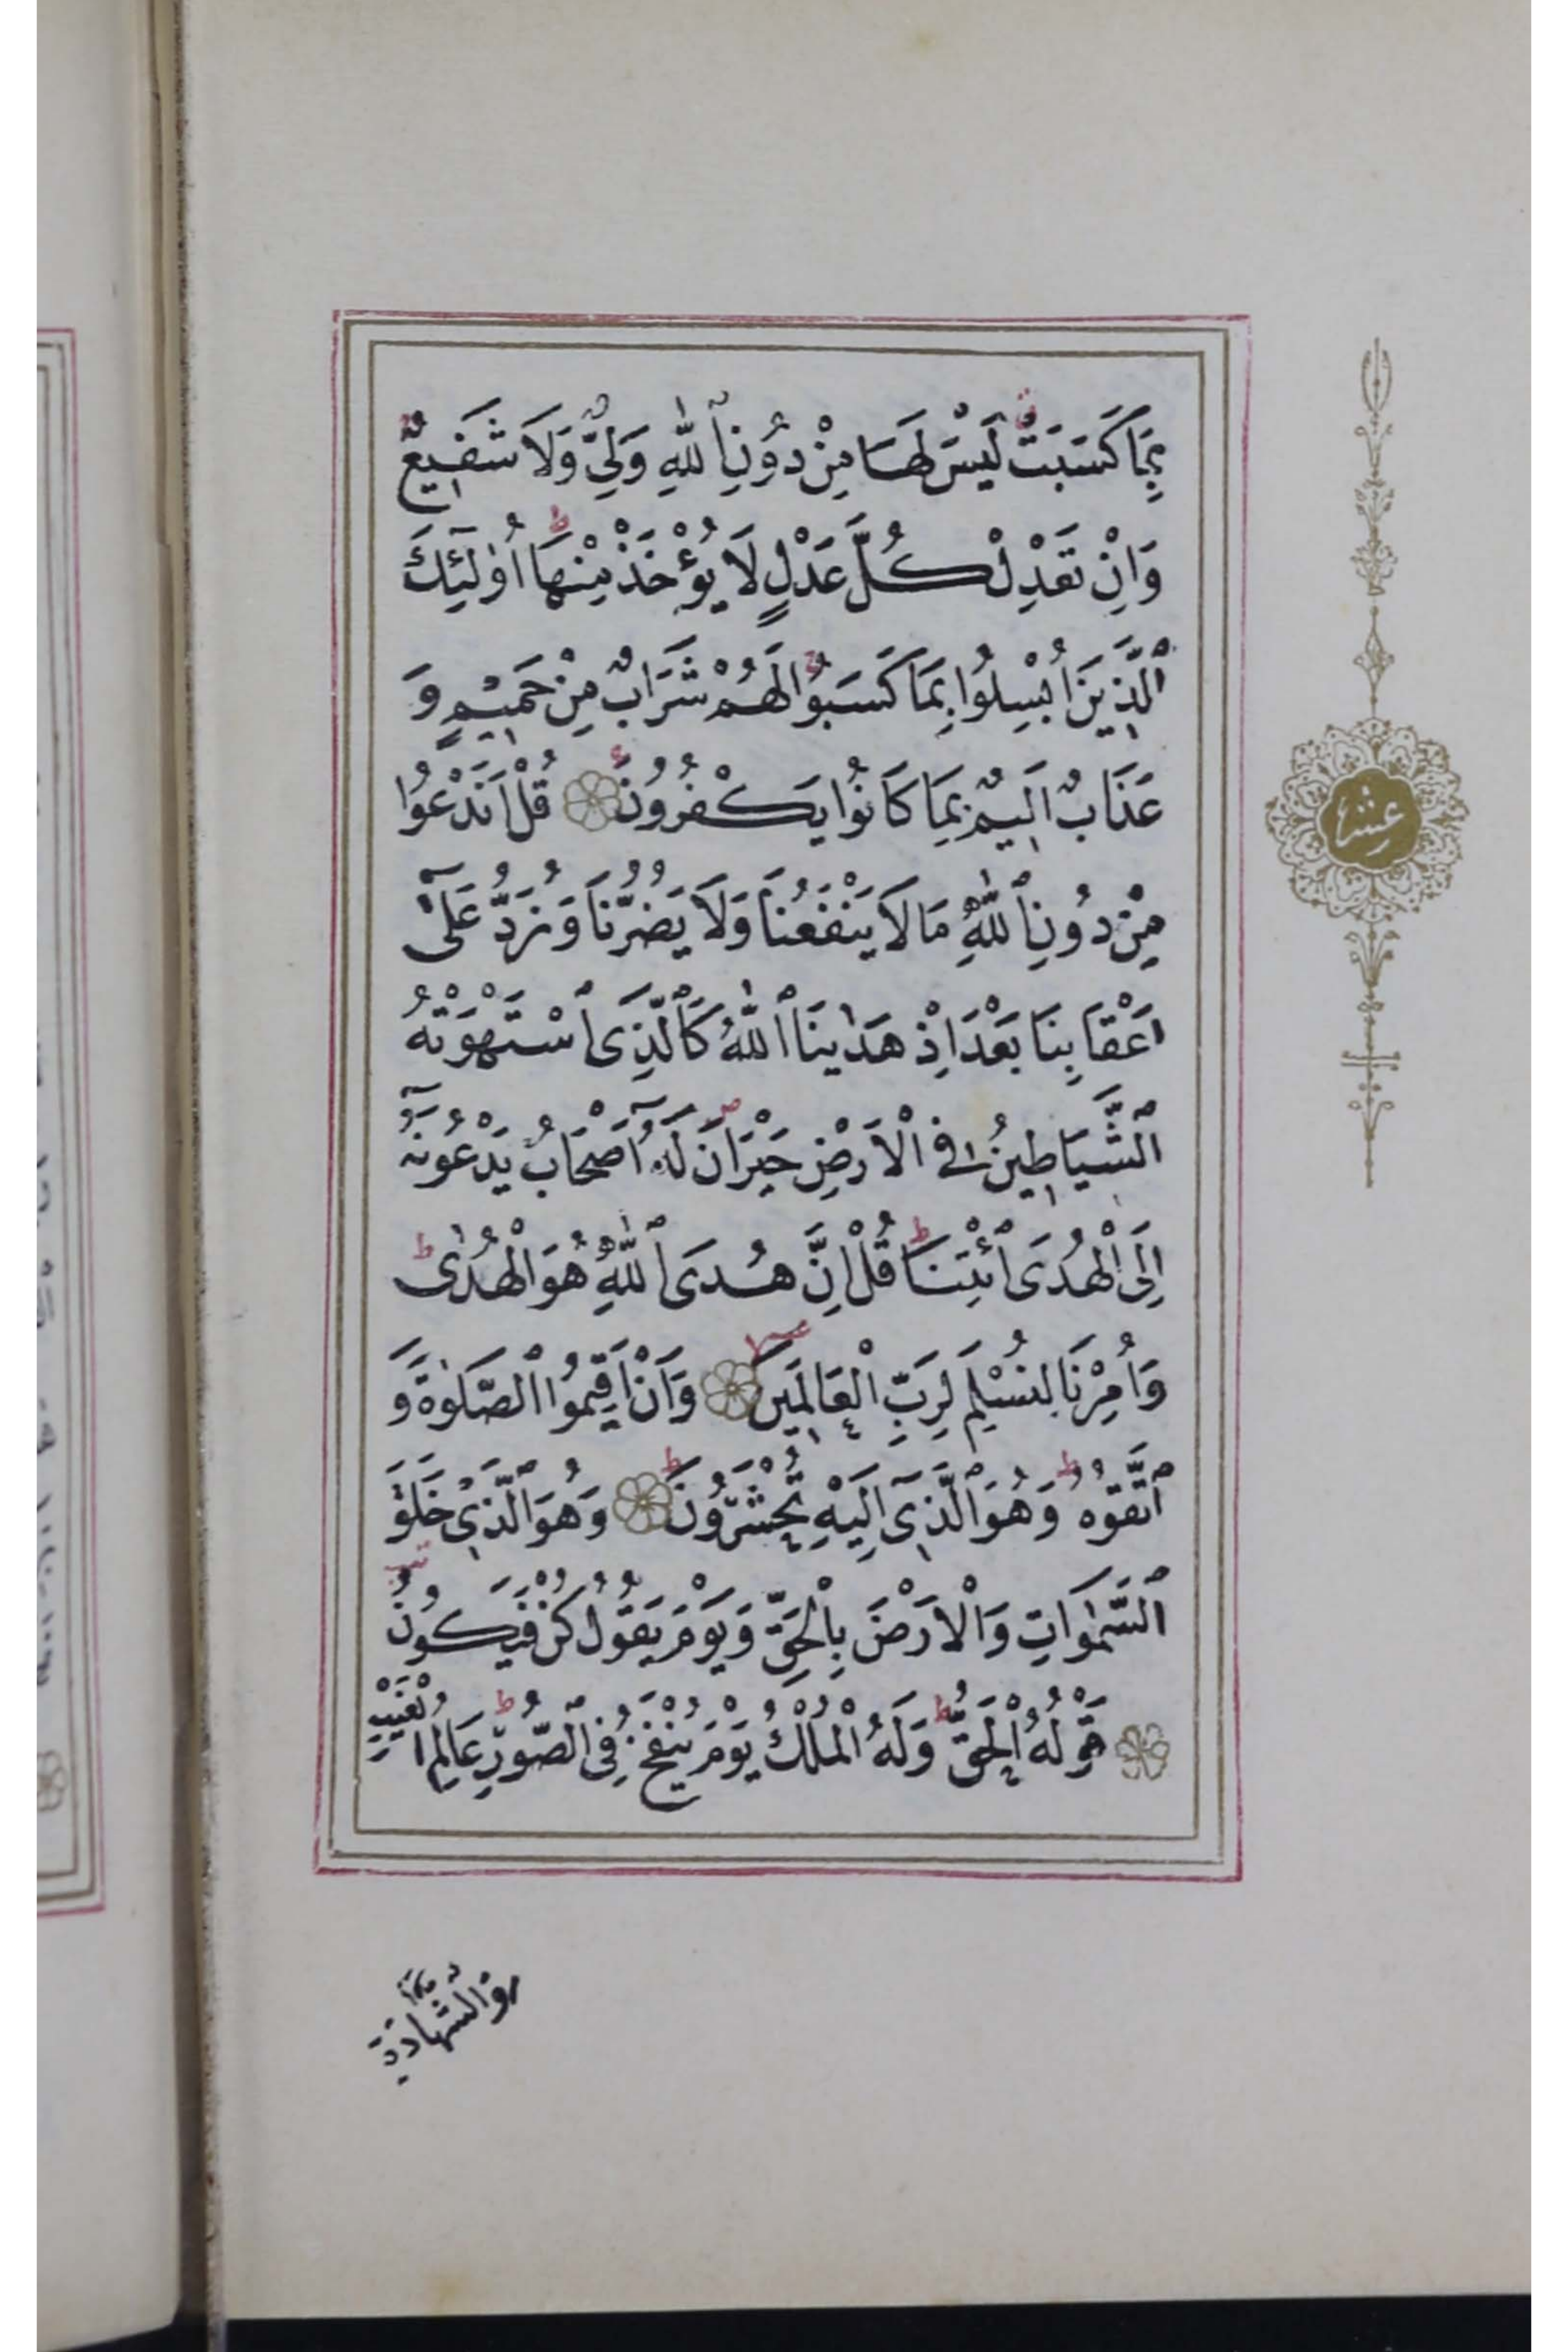 بِمَا كَسَبَتْ لَيْسَ لَهَا مِنْ دُونِ ٱللّٰهِ وَلِيٌّ وَلَا شَفِيعٌ
وَاِنْ تَعْدِلْ كُلَّ عَدْلٍ لَا يُؤْخَذْ مِنْهَا اُو۬لٰٓئِكَ
ٱلَّذِينَ اُبْسِلُوا بِمَا كَسَبُوا لَهُمْ شَرَابٌ مِنْ حَمِيمٍ وَ
عَذَابٌ اَلِيمٌ بِمَا كَانُوا يَكْفُرُونَ قُلْ اَنَدْعُوا
مِنْ دُونِ ٱللّٰهِ مَا لَا يَنْفَعُنَا وَلَا يَضُرُّنَا وَنُرَدُّ عَلٰٓى
اَعْقَابِنَا بَعْدَ اِذْ هَدٰينَا ٱللّٰهُ كَٱلَّذِى ٱسْتَهْوَتْهُ
ٱلشَّيَاطِينُ فِي ٱلْاَرْضِ حَيْرَانَ لَهُٓ اَصْحَابٌ يَدْعُونَهُٓ
اِلَى ٱلْهُدَى ٱئْتِنَا قُلْ اِنَّ هُدَى ٱللّٰهِ هُوَ ٱلْهُدٰى
وَاُمِرْنَا لِنُسْلِمَ لِرَبِّ ٱلْعَالَمِينَ وَاَنْ اَقِيمُوا ٱلصَّلٰوةَ وَ
ٱتَّقُوهُ وَهُوَ ٱلَّذِٓى اِلَيْهِ تُحْشَرُونَ وَهُوَ ٱلَّذِى خَلَقَ
ٱلسَّمٰوَاتِ وَٱلْاَرْضَ بِٱلْحَقِّ وَيَوْمَ يَقُولُ كُنْ فَيَكُونُ
قَوْلُهُ ٱلْحَقُّ وَلَهُ ٱلْمُلْكُ يَوْمَ يُنْفَخُ فِى ٱلصُّورِ عَالِمُ ٱلْغَيْبِ
عشر
وَٱلشَّهَادَةِ